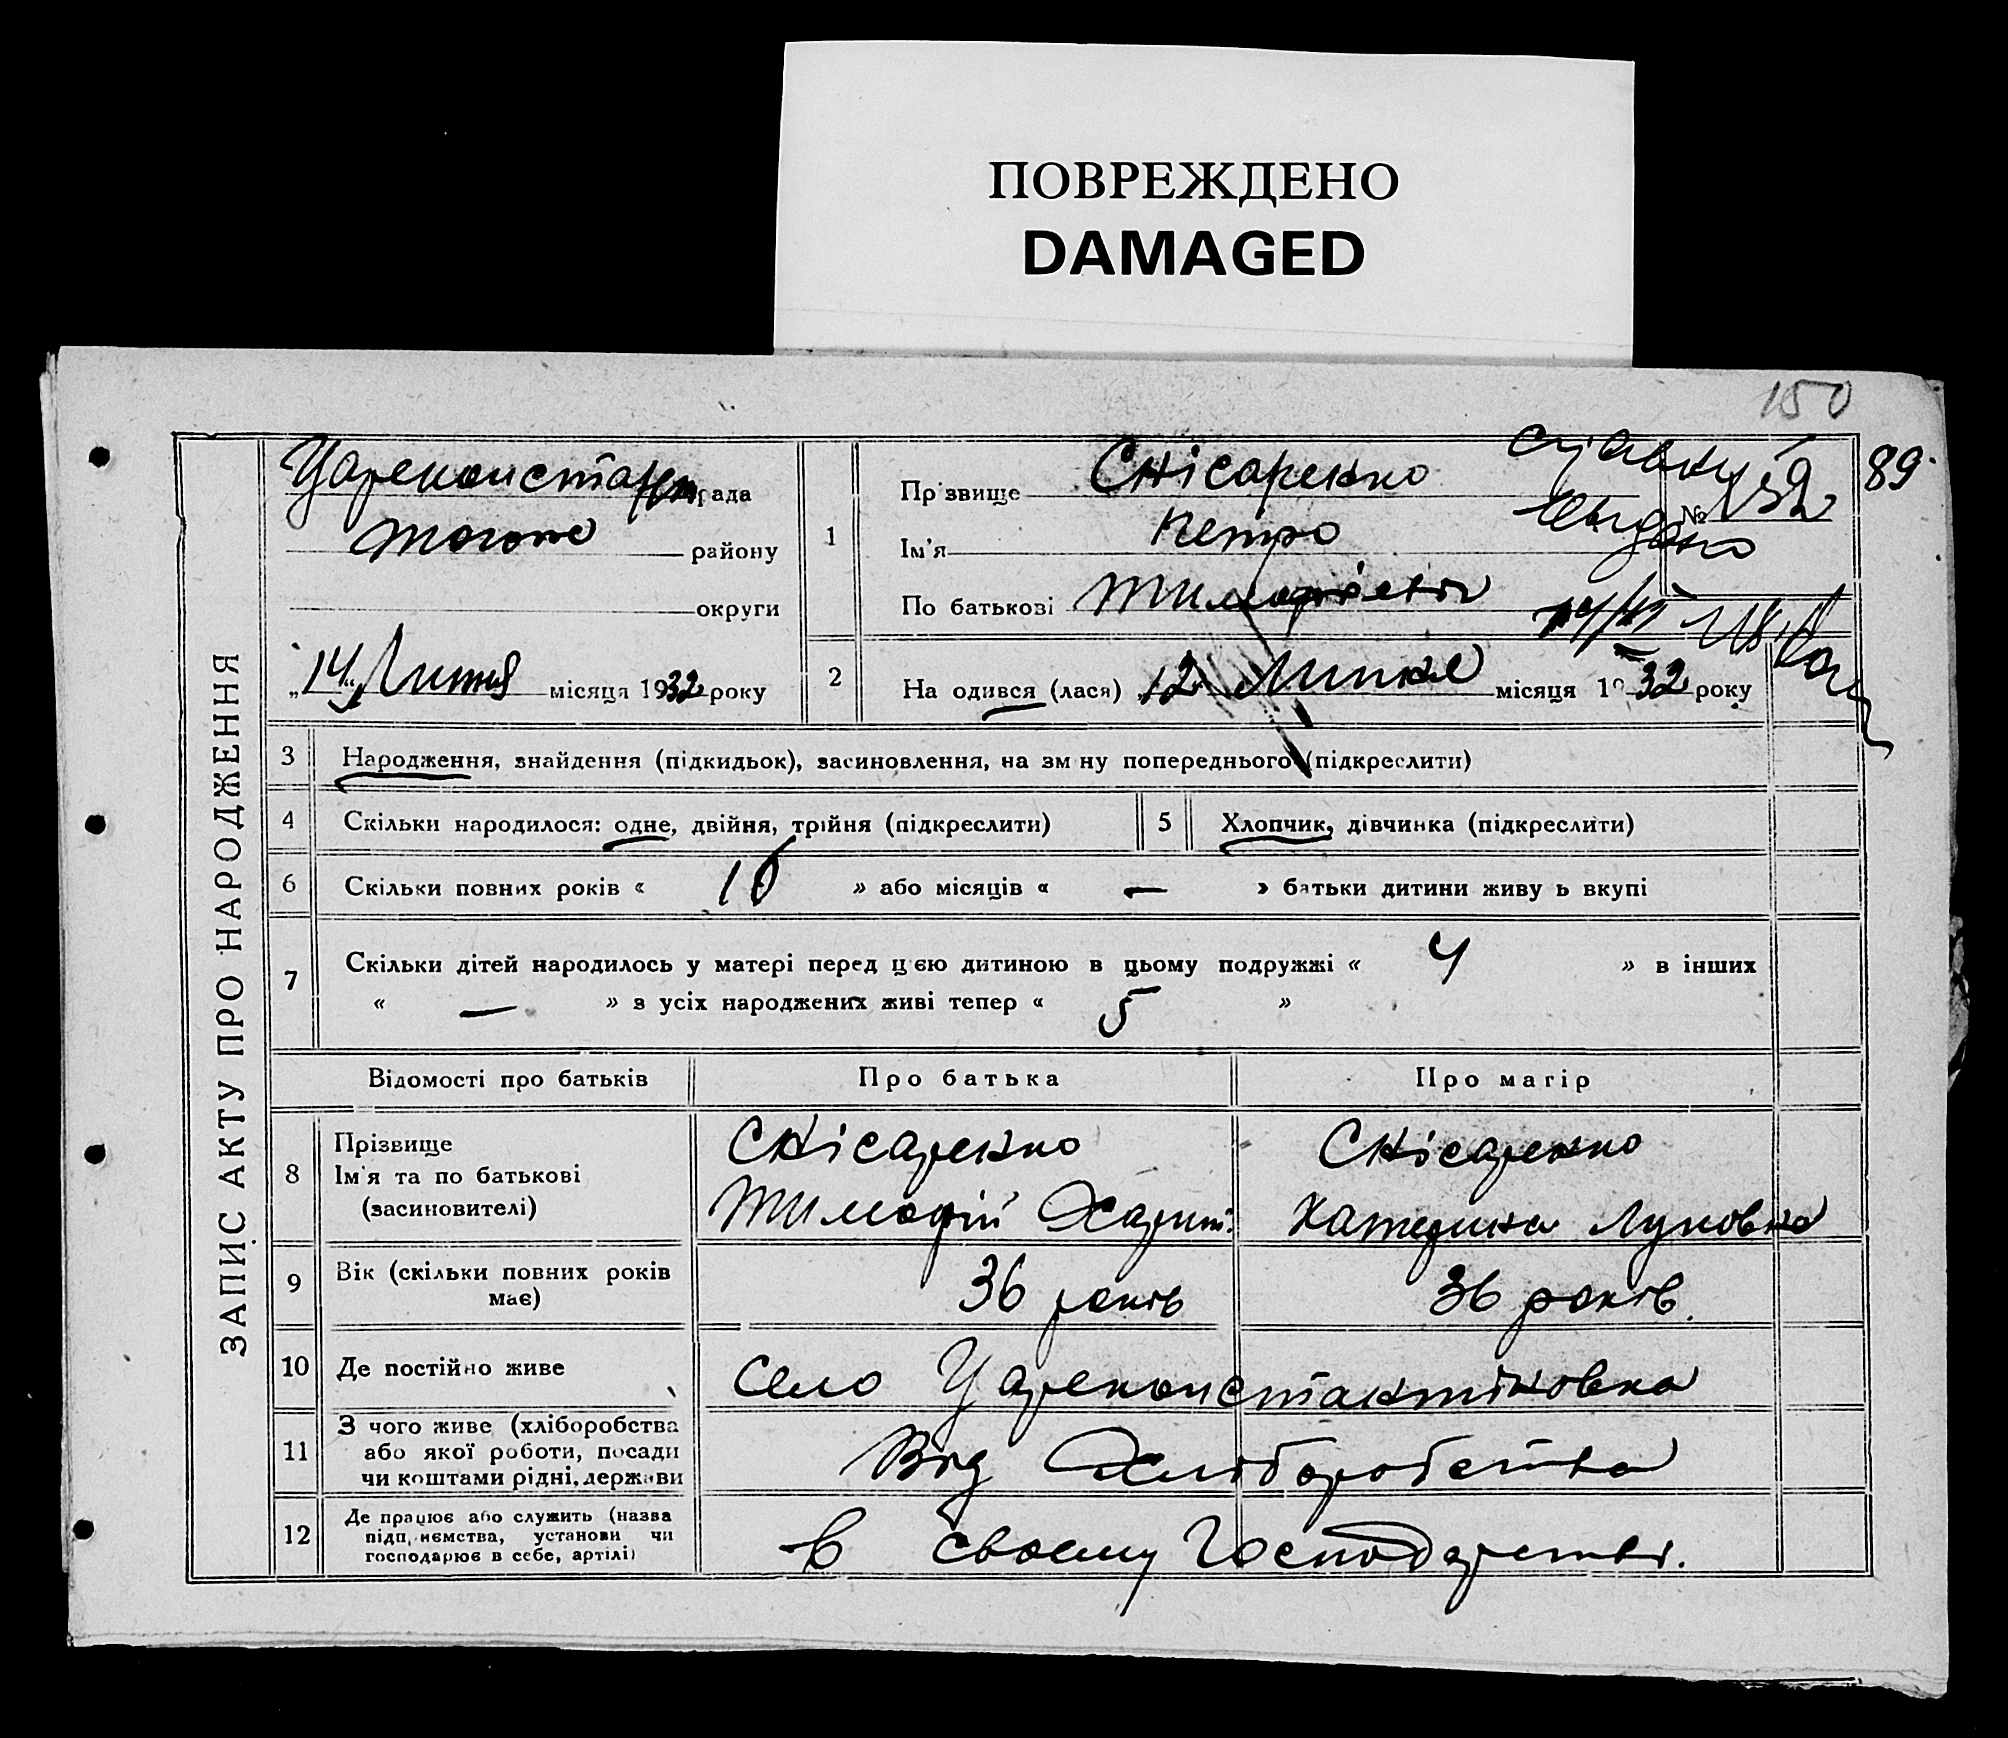 ПОВРЕЖДЕНО
DAMAGED
150
89
ЗАПИС АКТУ ПРО НАРОДЖЕННЯ
Цареконстан рада
того района району
округи
„14„ Липня місяця 1932 року
1
Прізвище Снісаренко
Ім'я Петро
По батькові Тимофієвіч
справку
Выдано
№ 159
2
На одився (лася) „12„ Липня місяця 19 32 року
3 Народження, знайдення (підкидьок), засиновлення, на зм ну попереднього (підкреслити)
4 Скільки народилося: одне, двійня, трійня (підкреслити) 5 Хлопчик, дівчинка (підкреслити)
6 Скільки повних років « 16 » або місяців « — » батьки дитини живу ь вкупі
7 Скільки дітей народилось у матері перед цією дитиною в цьому подружжі « 4 » в інших
« — » з усіх народжених живі тепер « 5 »
Відомості про батьків Про батька Про матір
8 Прізвище Снісаренко Снісаренко
Ім'я та по батькові Тимофій Харит. Катерина Луковна
(засиновителі)
9 Вік (скільки повних років 36 років 36 років
має)
10 Де постійно живе село Цареконстантіновка
11 З чого живе (хліборобства Від Хліборобства
або якої роботи, посади
чи коштами рідні, держави
12 Де працює або служить (назва в своєму Господарстві.
підп иємства, установи чи
господарює в себе, артілі)